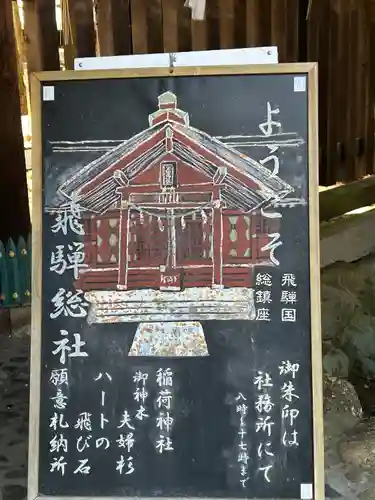 ようこそ
飛騨国
総鎮座
飛騨総社
御朱印は
社務所にて
八時~十七時まで
稲荷神社
御神木
夫婦杉
飛び石
ハートの
願意札納所